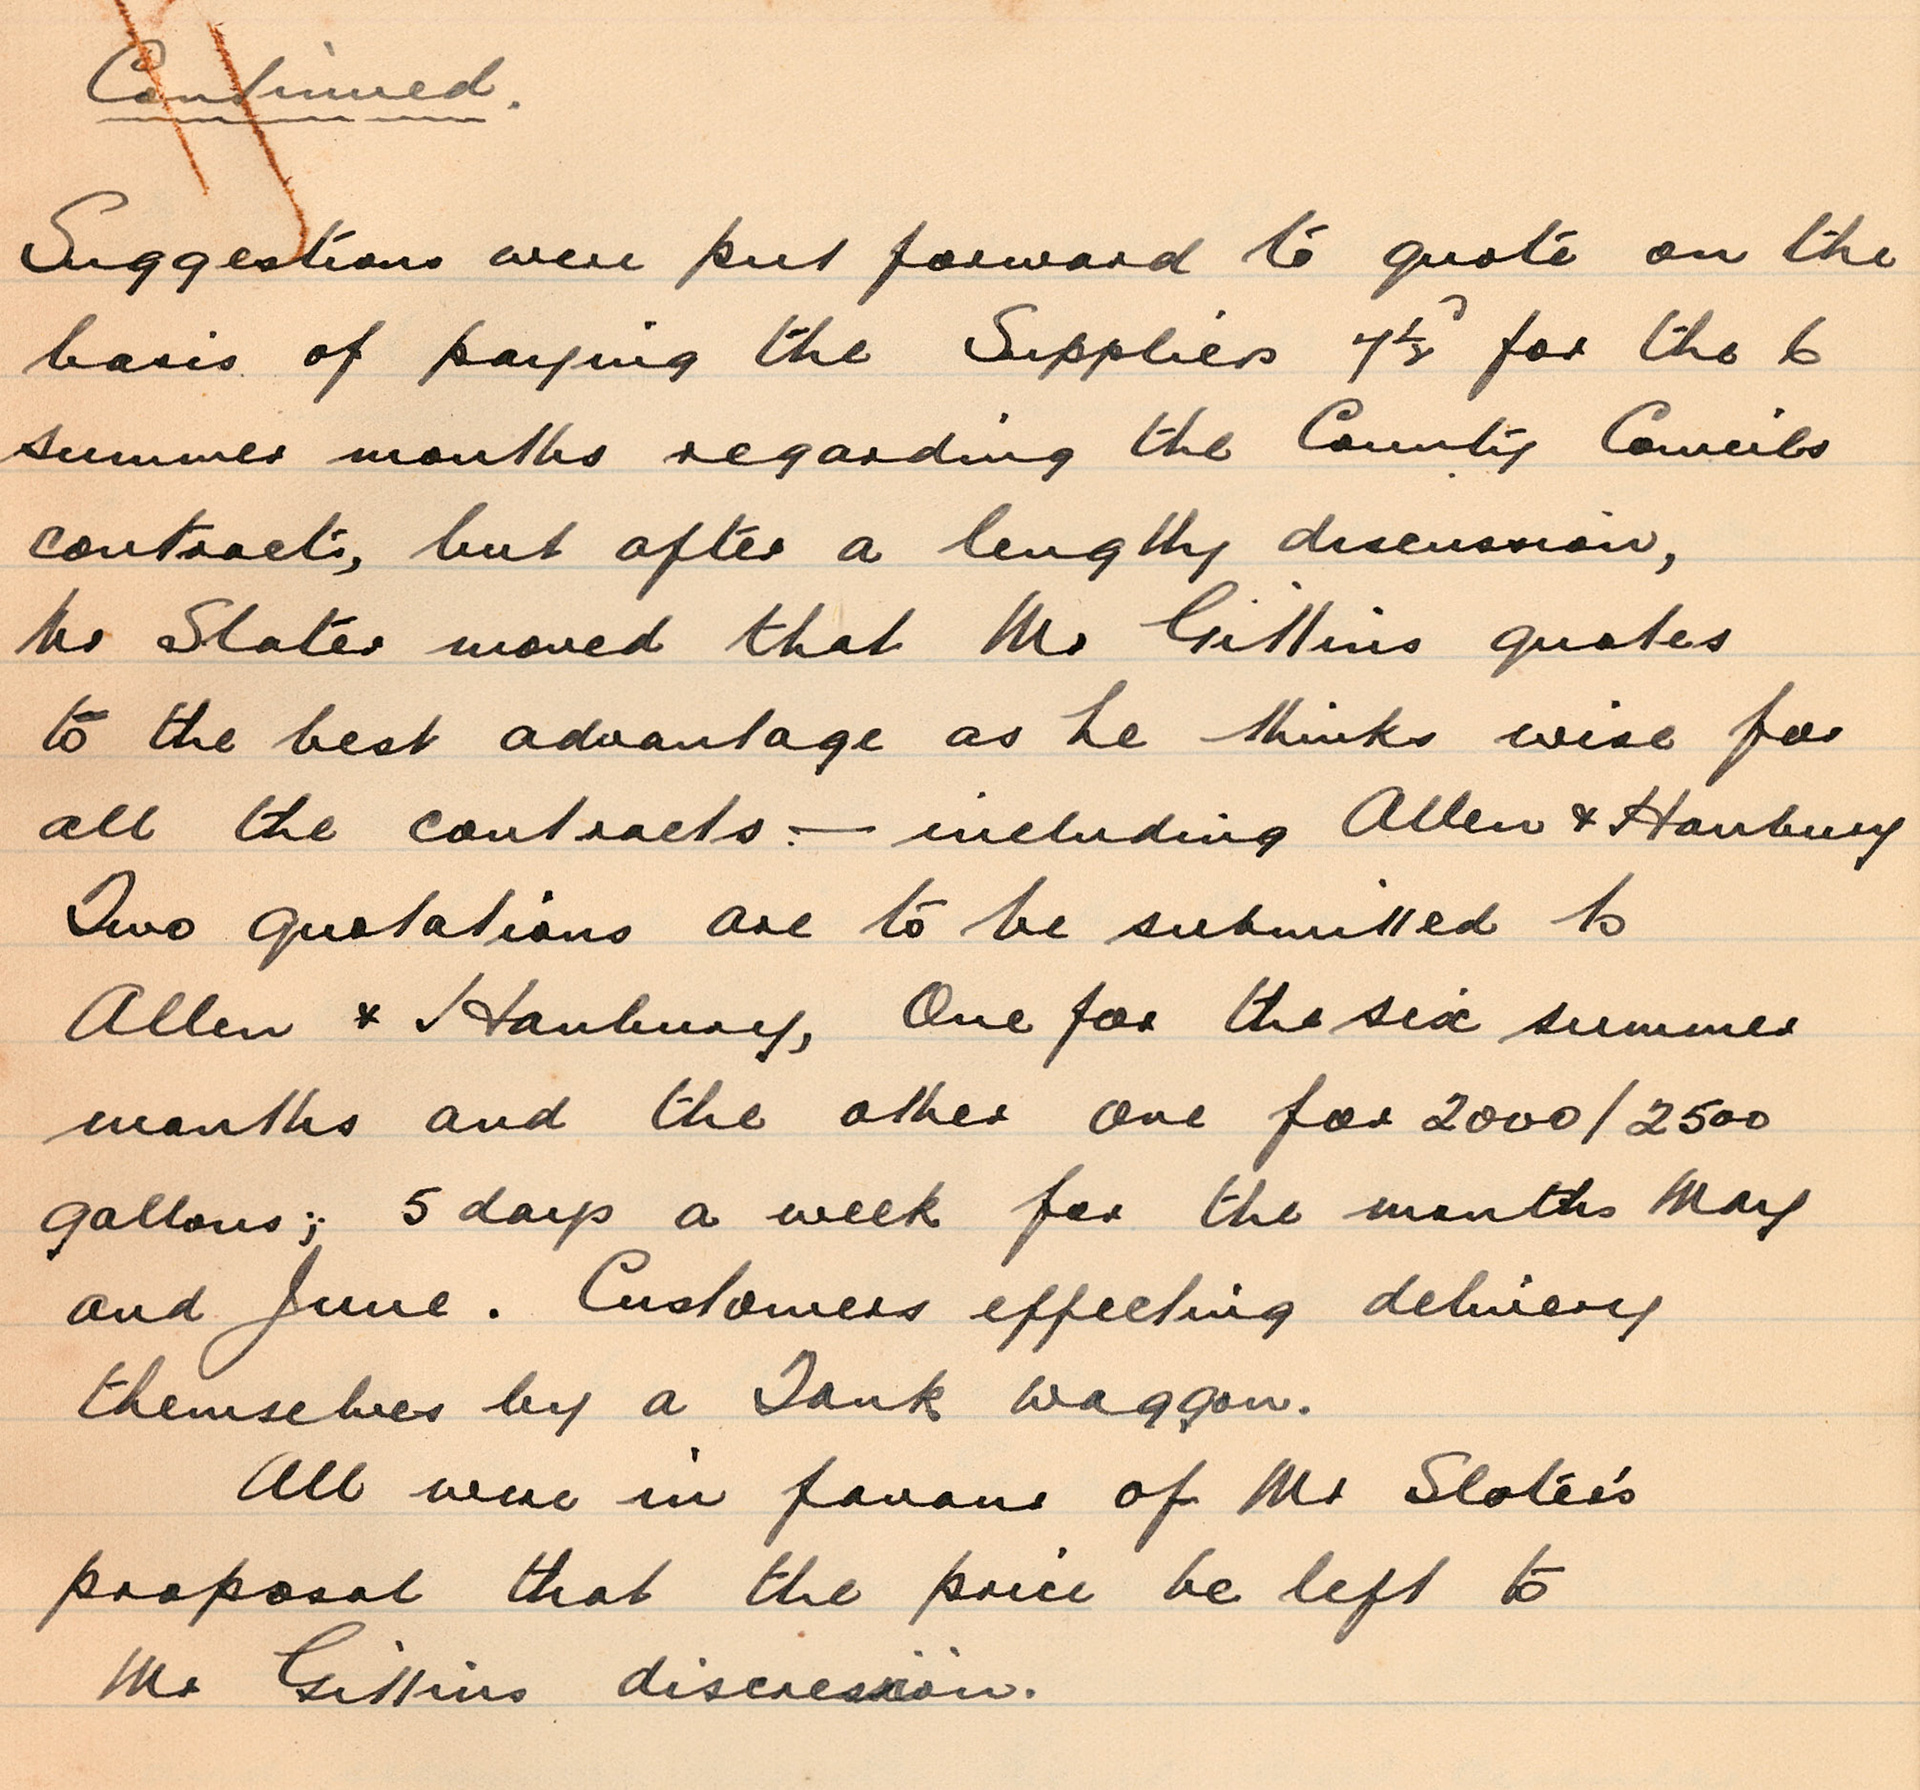 Continued.
Suggestions were put forward to quote on the
basis of paying the Suppliers 7½ᵈ for the 6
summer months regarding the County Councils
contracts, but after a lengthy discussion,
Mr Slater moved that Mr Gittins quotes
to the best advantage as he thinks wise for
all the contracts :— including Allen & Hanbury
Two quotations are to be submitted to
Allen & Hanbury, One for the six summer
months and the other one for 2000/2500
gallons; 5 days a week for the months May
and June. Customers effecting delivery
themselves by a Tank waggon.
All were in favour of Mr Slater's
proposal that the price be left to
Mr Gittins discresion.